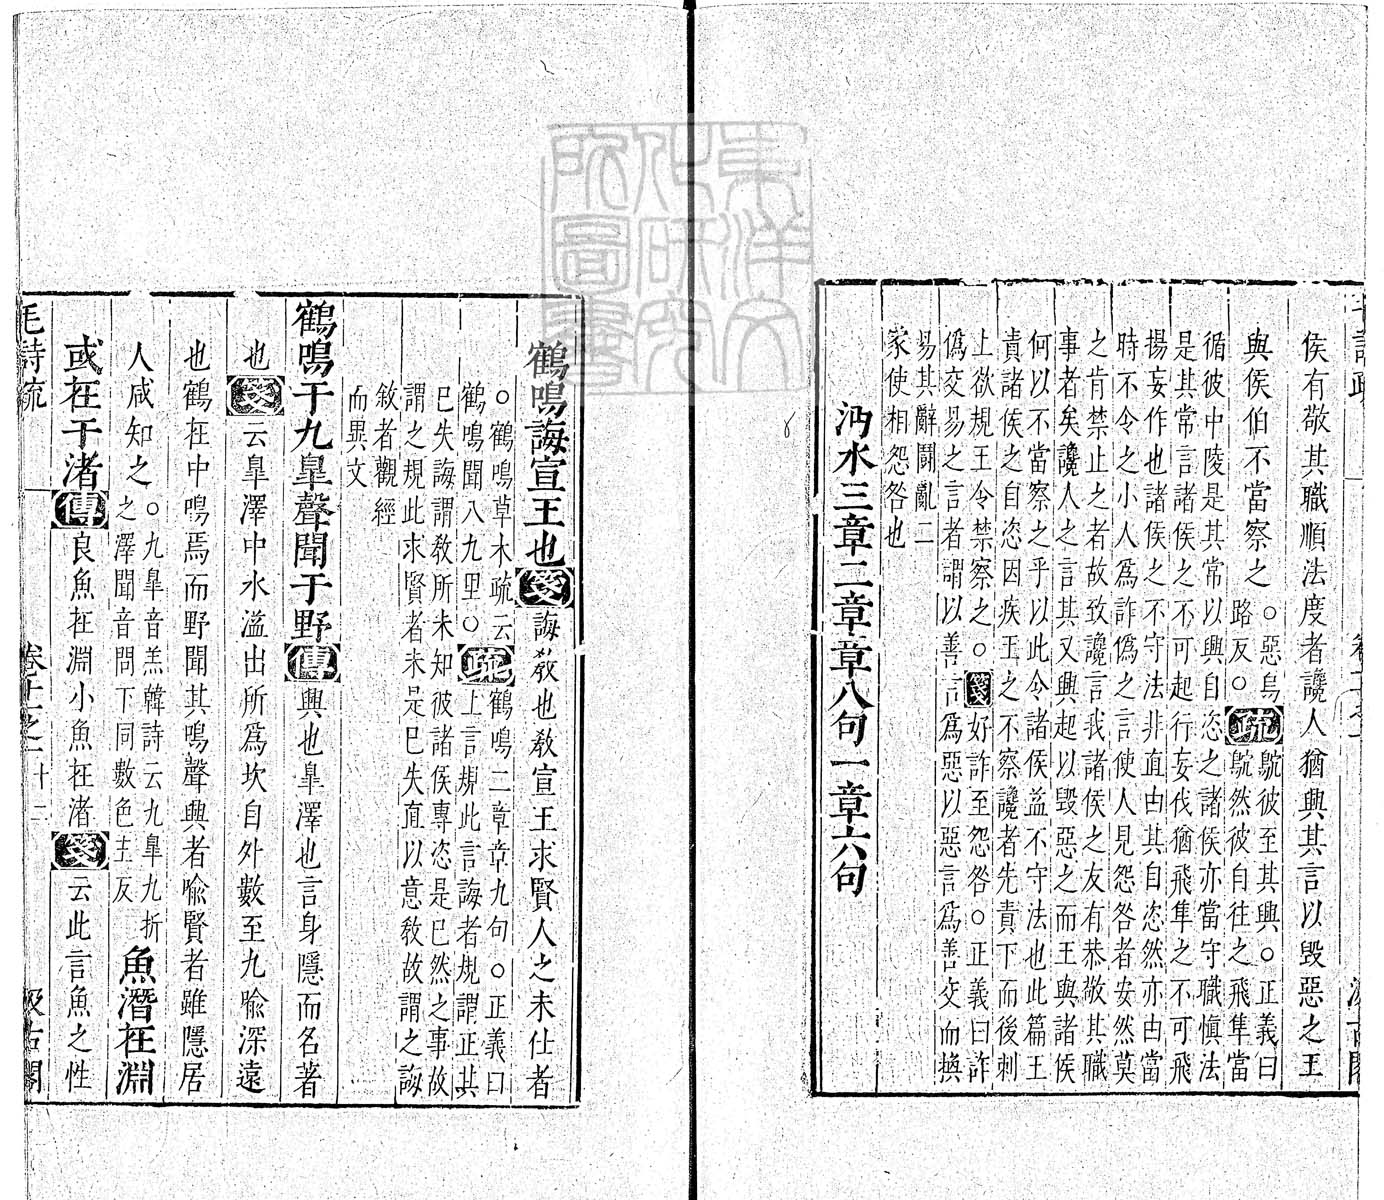 侯有敬其職順法度者讒人猶興其言以毀惡之王
與侯伯不當察之
○惡烏
路反○
疏
鴥彼至其興○正義曰
鴥然彼自往之飛隼當
循彼中陵是其常以興自恣之諸侯亦當守職慎法
是其常言諸侯之不可起行妄伐猶飛隼之不可飛
揚妄作也諸侯之不守法非直由其自恣然亦由當
時不令之小人爲詐僞之言使人見怨咎者安然莫
之肯禁止之者故致讒言我諸侯之友有恭敬其職
事者矣讒人之言其又興起以毀惡之而王與諸侯
何以不當察之乎以此令諸侯益不守法也此篇王
責諸侯之自恣因疾王之不察讒者先責下而後刺
上欲規王令禁察之○箋好詐至怨咎○正義曰詐
僞交易之言者謂以善言爲惡以惡言爲善交而換
易其辭鬬亂二
家使相怨咎也
沔水三章二章章八句一章六句
鶴鳴誨宣王也箋誨教也教宣王求賢人之未仕者
○鶴鳴草木疏云
鶴鳴聞八九里○
疏
鶴鳴二章章九句○正義曰
上言規此言誨者規謂正其
巳失誨謂教所未知彼諸侯專恣是巳然之事故
謂之規此求賢者未是巳失直以意教故謂之誨
敘者觀經
而異文
鶴鳴于九臯聲聞于野傳興也臯澤也言身隱而名著
也箋云臯澤中水溢出所爲坎自外數至九喻深遠
也鶴在中鳴焉而野聞其鳴聲興者喻賢者雖隱居
人咸知之
○九臯音羔韓詩云九臯九折
之澤聞音問下同數色主反
魚潛在淵
或在于渚傳良魚在淵小魚在渚箋云此言魚之性
毛詩疏
卷十一之一
十二
汲古閣